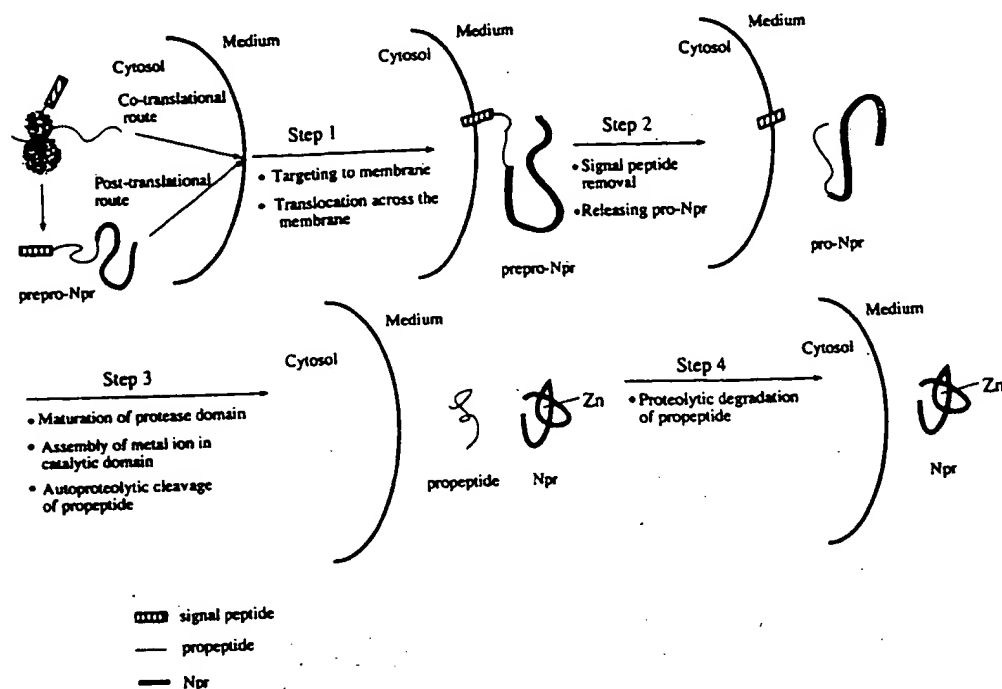 Medium
Cytosol
Co-translational
route
Post-translational
route
prepro-Npr
Step 1
• Targeting to membrane
• Translocation across the
membrane
Medium
Cytosol
prepro-Npr
Step 2
• Signal peptide
removal
• Releasing pro-Npr
Medium
Cytosol
pro-Npr
Step 3
• Maturation of protease domain
• Assembly of metal ion in
catalytic domain
• Autoproteolytic cleavage
of propeptide
Medium
Cytosol
Zn
propeptide
Npr
Step 4
• Proteolytic degradation
of propeptide
Medium
Cytosol
Zn
Npr
signal peptide
propeptide
Npr